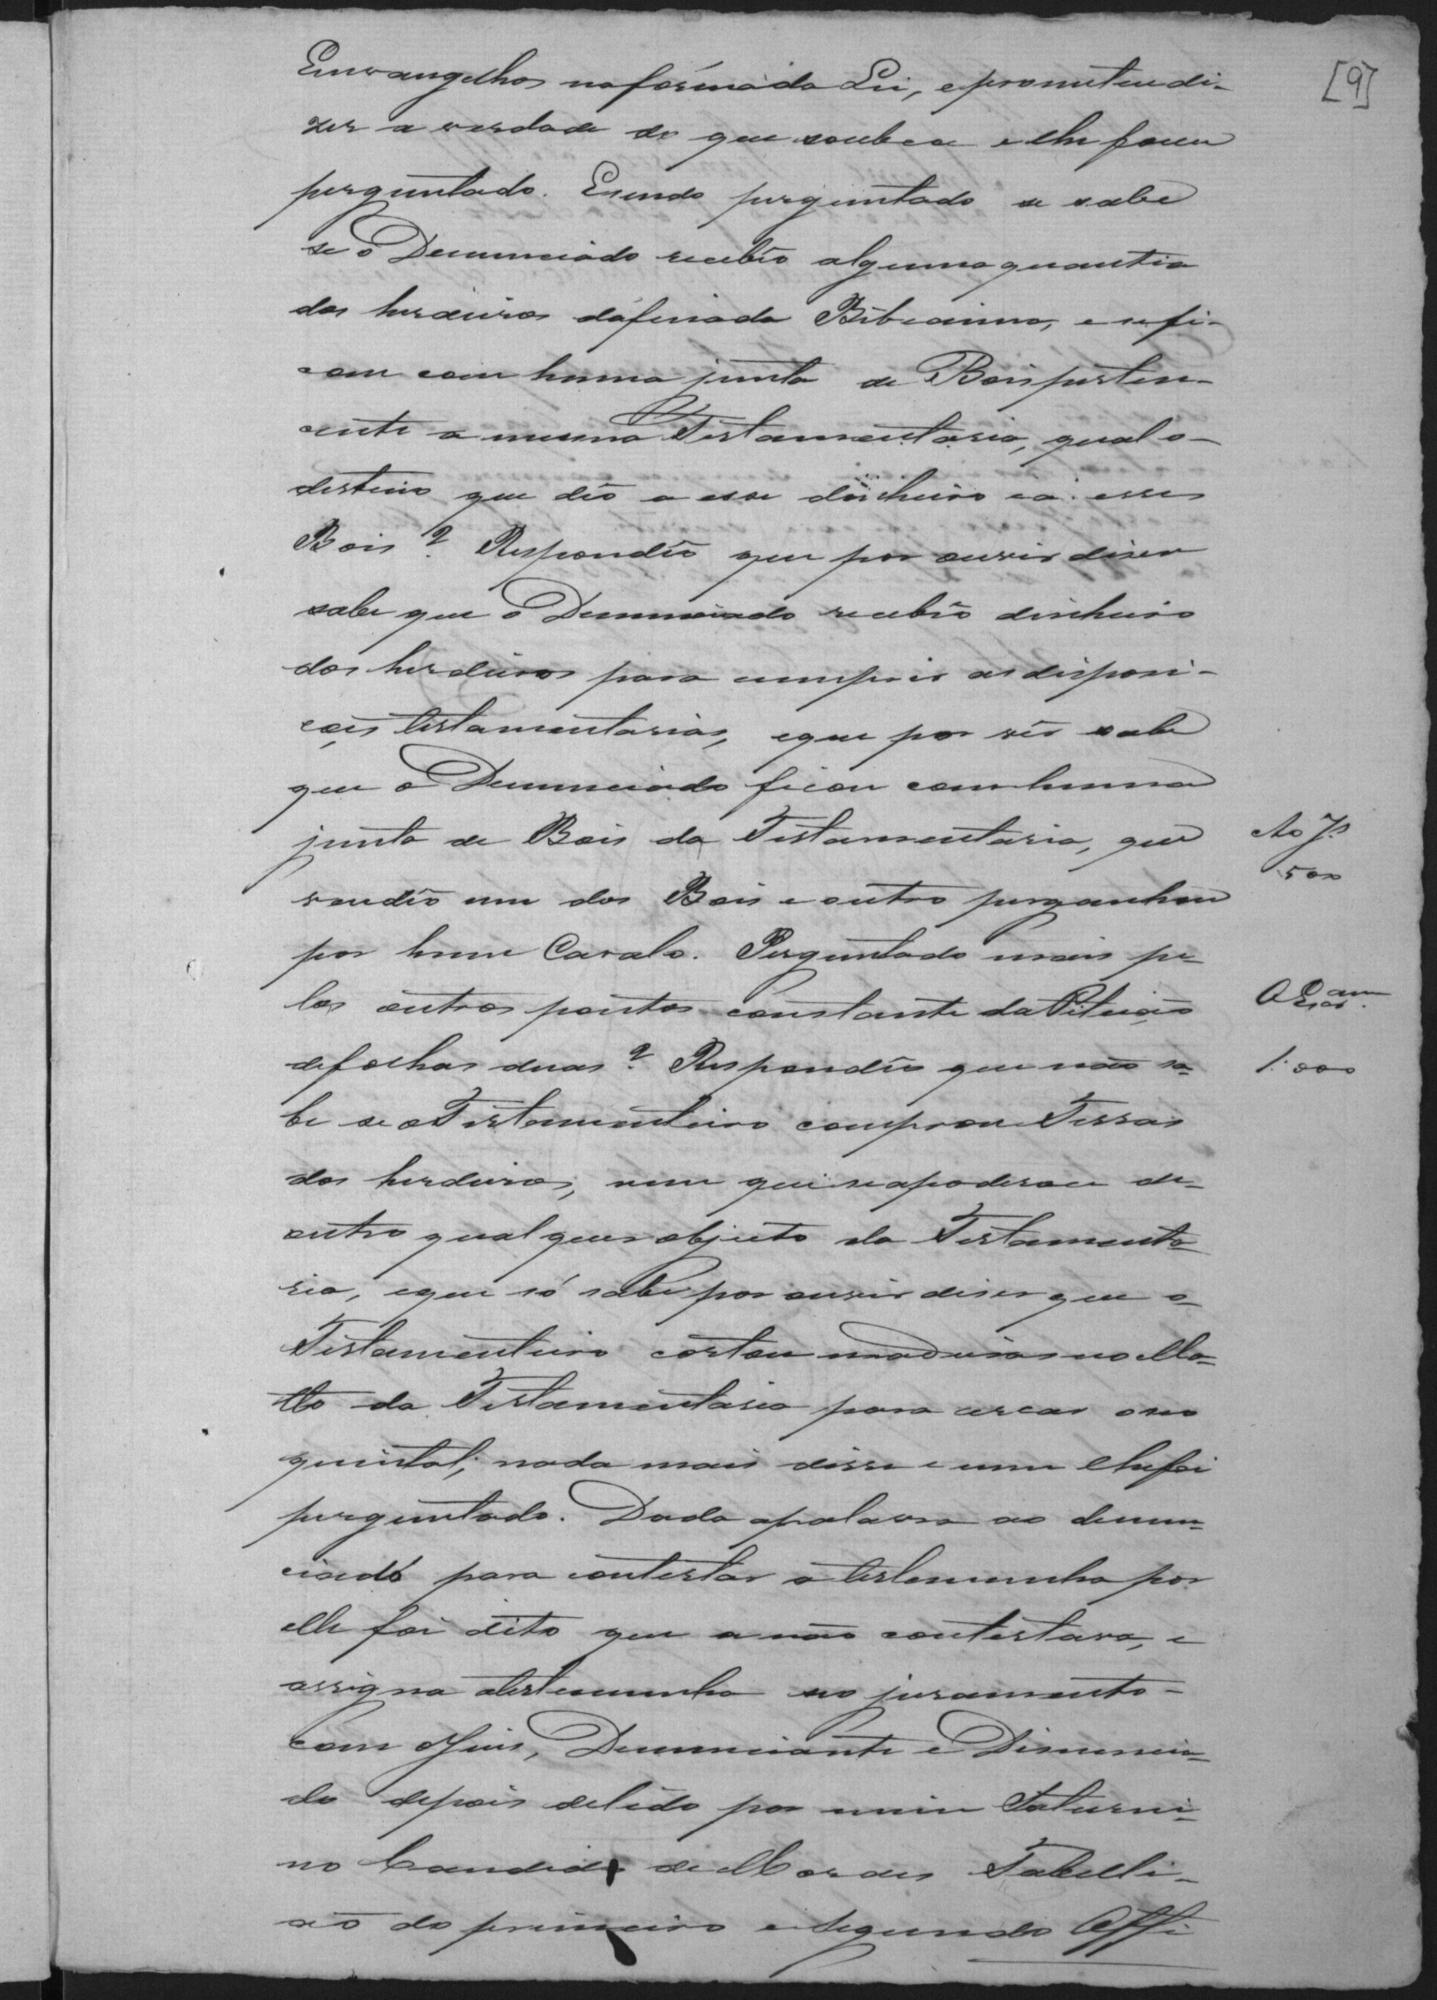 [9]
Emvangelhos na fórma da Lei, e prometeu di-
zer a verdade do que soubece e lhe fosse
perguntado. Esendo perguntado se sabe
se o Denunciado recebêo alguma quantia
dos herdeiros dafinada Bibeanna, e se fi-
cou com huma junta de Bois perten-
cente a mesma Testamentaria, qual o-
destino que dêo a esse dinheiro e a esses
Bois? Respondêo que por ouvir diser
sabe que o Denunciado recebêo dinheiro
dos herdeiros para cumprir as disposi-
coẽs testamentarias, e que por vêr sabe
que o Denunciado ficou com huma
junta de Bois da Testamentaria, que
vendêo um dos Bois e outro perganhou
por hum Cavalo. Perguntado mais pe-
los outros pontos constante da Petição
de folhas duas? Respondêo que não sa-
be se o Testamenteiro comprou Terras
dos herdeiros, nem que se apoderace de-
outro qualquer objecto da Testamenta-
ria, e que só sabe por ouvir diser que o-
Testamenteiro cortou madeiras no Ma-
tto da Testamentaria para cercar o seo
quintal; nada mais disse e nem lhe foi
perguntado. Dada apalavra ao denun-
ciado para contestar a testemunha por
elle foi dito que a não contestava, e
assigna atestemunha seo juramento-
com o Juis, Denunciante e Denuncia-
do depois delido por mim Saturni-
no Candido de Moraes Tabelli-
aõ do primeiro e segundo Offi
Ao Js
500
1:000